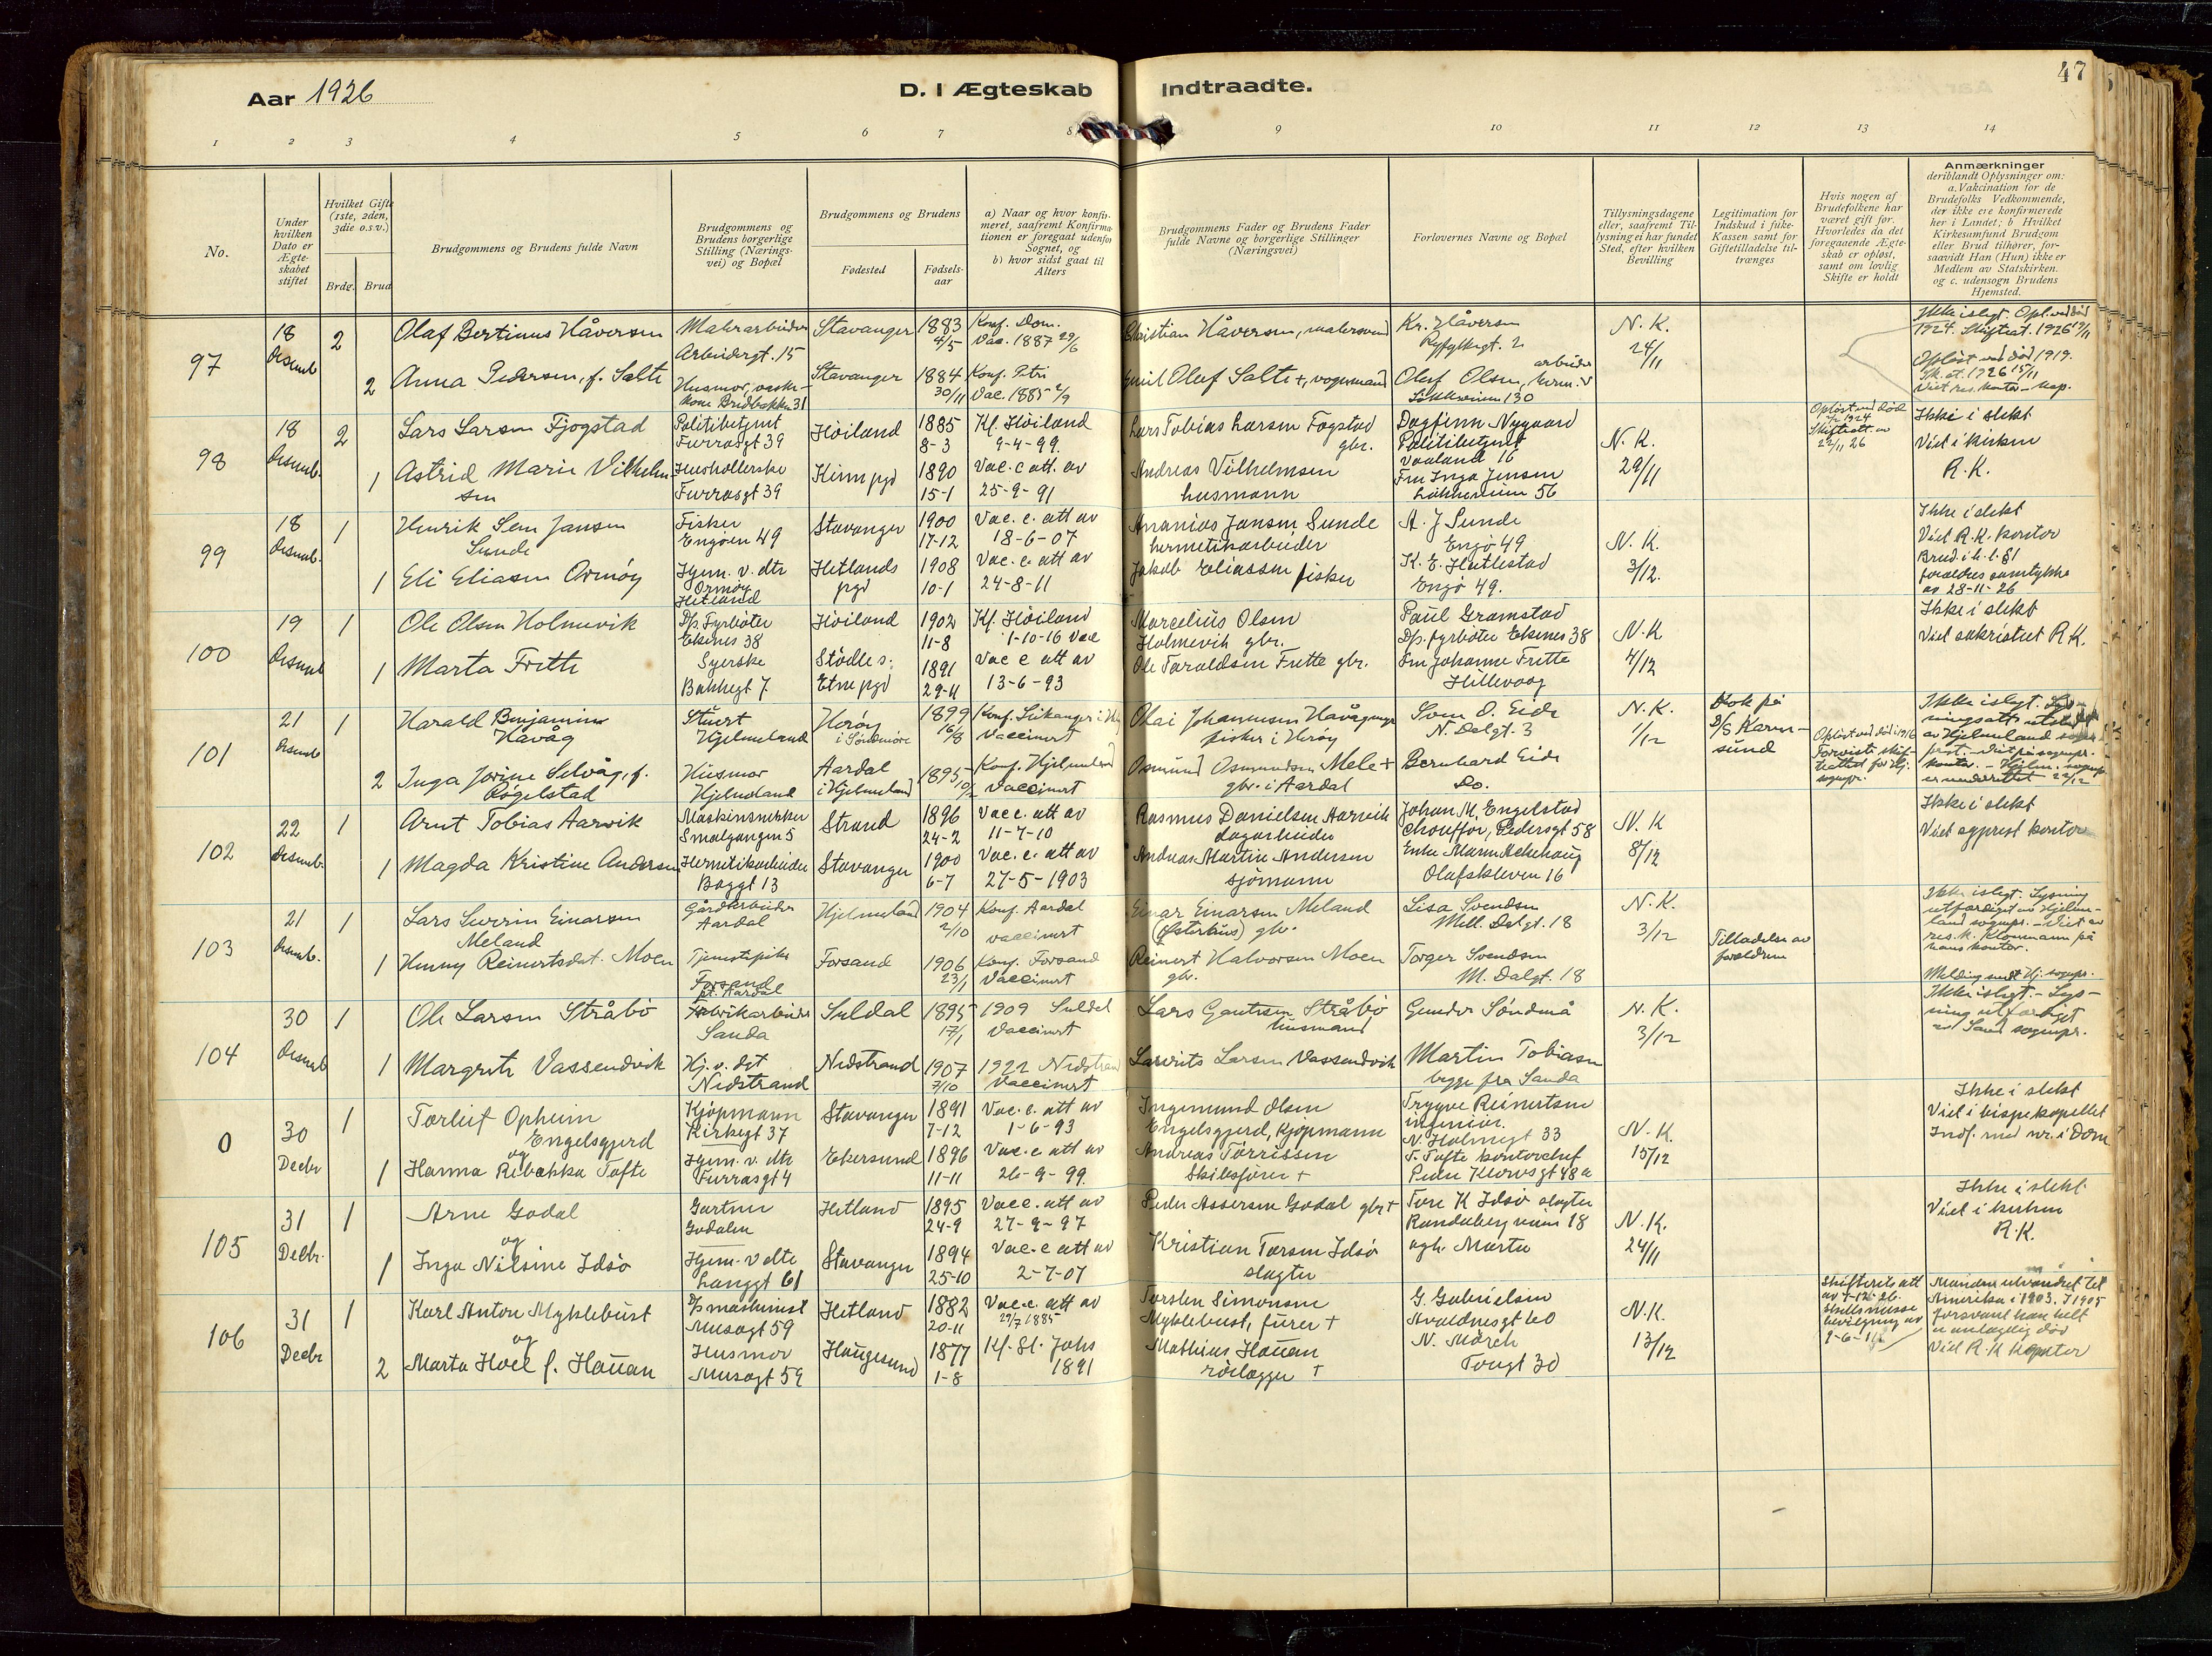 47
Aar 1926
D. I Ægteskab Indtraadte.
1 2 3 4 5 6 7 8 9 10 11 12 13 14
No.
Under hvilken Dato er Ægteskabet stiftet
Hvilket Gifte (1ste, 2den, 3die o.s.v.)
Brdg. Brud
Brudgommens og Brudens fulde Navn
Brudgommens og Brudens borgerlige Stilling (Næringsvei) og Bopæl
Brudgommens og Brudens
Fødested
Fødselsaar
a) Naar og hvor konfirmeret, saafremt Konfirmationen er foregaat udenfor Sognet, og
b) hvor sidst gaat til Alters
Brudgommens Fader og Brudens Fader fulde Navne og borgerlige Stillinger (Næringsvei)
Forlovernes Navne og Bopæl
Tillysningsdagene eller, saafremt Tillysning ei har fundet Sted, efter hvilken Bevilling
Legitimation for Indskud i fuke-Kassen samt for Giftetilladelse tiltrænges
Hvis nogen af Brudefolkene har været gift før. Hvorledes da det foregaaende Ægteskab er opløst, samt om lovlig Skifte er holdt
Anmærkninger
deriblandt Oplysninger om: a. Vakcination for de Brudefolks Vedkommende, der ikke ere konfirmerede her i Landet; b Hvilket Kirkesamfund Brudgom eller Brud tilhører, forsaavidt Han (Hun) ikke er Medlem av Statskirken. og c. udensogn Brudens Hjemsted.
97
18 Desemb.
2 Olaf Bertinus Håversen
Malerarbeider Arbeidergt. 15
Stavanger 1883 4/5
Konf. Dom. Vac. 1887 29/6
Christian Håversen, malersvend
Kr. Håversen Ryfylkegt. 2
N.K. 24/11
Ikke i slegt. Opl. ved død 1924. Skifteat. 1926
2 Anna Pedersen, f. Salte
Husmor, vaskekone
Stavanger 1884 30/11
Konf. Petri Vac. 1885 2/9
Emil Oluf Salte +, vognmand
Oluf Olsen, herm. arbeider 130
Opløst ved død 1919. Sk. at. 1926 15/11
98
18 Desemb.
2 Lars Larsen Fjogstad
Politibetjent Furrasgt 39
Høiland 1885 8-3
Kf. Høiland 9-4-99.
Lars Tobias Larsen Fogstad gbr.
Dagfinn Nygaard Politibetjent Vaaland 16
N.K. 29/11
Opløst ved død 1924 Skifteatt. av 22/11 26
Ikke i slekt
Viet i kirken R.K.
1 Astrid Marie Vilhelmsen
Husholderske Furrasgt 39
Kinn pgd 1890 15-1
Vac. e att. av 25-9-91
Andreas Vilhelmsen husmann
Fru Inga Jensen 56
99
18 Desemb.
1 Henrik Sem Jansen Sunde
Fisker Engøen 49
Stavanger 1900 17-12
Vac. e. att av 18-6-07
Ananias Jansen Sunde hermetikarbeider
A. J Sunde Engø 49
N.K. 3/12.
Ikke i slekt
Viet R.K. kontor
foreldres samtykke av 28-11-26
1 Eli Eliasen Ormøy
Hjem. v. dtr Ormøy Hetland
Hetlands pgd 1908 10-1
Vac. e. att av 24-8-11
Jakob Eliassen fisker
K. E. Hetlestad Engø 49.
100
19 Desemb
1 Ole Olsen Holmevik
D/s fyrbøter Ekenes 38
Høiland 1902 11-8
Kf. Høiland 1-10-16 Vac
Marcelius Olsen Holmevik gbr.
Paul Gramstad D/s. fyrbøter Ekenes 38
N.K 4/12
Ikke i slekt
Viet sakristiet R.K.
1 Marta Frette
Syerske Bakkegt 7.
Stødle s. Etne pgd 1891 29-11
Vac e att av 13-6-93
Ole Taraldsen Frette gbr.
Fru Johanne Frette Hillevaag
101
21 Desemb
1 Harald Benjamin Havåg
Stuert Hjelmeland
Herøy i Søndmøre 1899 16/8
Vaccinert
Olai Johannessen fisker i Herøy
Sven O. Eide N. Dalgt. 3
N.K. 1/12
Dok på D/S Karmsund
Opløst ved død i 1916
2 Inga Jorine Selvåg, f. Røgelstad
Husmor Hjelmeland
Aardal i Hjelmeland 1895 10/2
Konf. Hjelmeland Vaccinert
Osmund Osmundsen Mele + gbr. i Aardal
Bernhard Eide Do.
102
22 Desemb.
1 Arnt Tobias Aarvik
Maskinsnekker Smalgangen 5
Strand 1896 24-2
Vacc. att av 11-7-10
Rasmus Danielsen Aarvik dagarbeider
Johan M. Engelstad Chouffør, Pedersgt 58
N.K 8/12
Ikke i slekt
Viet sgprest kontor
1 Magda Kristine Andersen
Hermetikarbeider Baggt 13
Stavanger 1900 6-7
Vac. e. att av 27-5-1903
Andreas Martin Andersen sjømann
Olafskleven 16
103
21 Desemb.
1 Lars Severin Einarsen Meland
Gårdsarbeider Aardal
Hjelmeland 1904 2/10
Konf. Aardal vaccinert
Einar Einarsen Meland (Østerhus) gbr.
Lisa Svendsen Mell. Dalgt. 18
N.K. 3/12
Tilladelse av forældrene
Ikke i slegt. Lysning utfærdiget av Hjelmeland sognepr. – Viet av res. k. Klopmann på hans kontor.
1 Henny Reinertsdat. Moen
Tjenestepike Forsand pt. Aardal
Forsand 1906 23/1
Konf. Forsand Vaccinert
Reinert Halvorsen Moen gbr.
Torger Svendsen M. Dalgt. 18
Melding sendt Hj. sognepr.
104
30 Desemb
1 Ole Larsen Stråbø
Fabrikarbeider Sanda
Suldal 1895 17/1
1909 Suldal Vaccinert
Lars Gautesen Stråbø husmand
Gunder Søndmå
N.K. 3/12
Ikke i slegt. – Lysning utfærdiget av Sand sognepr.
1 Margrete Vassendvik
Hj. v. dat Nedstrand
Nedstrand 1907 7/10
1922 Nedstrand Vaccinert
Laurits Larsen Vassendvik
Martin Tobiasen begge fra Sanda
0
30 Decbr
1 Torleif Opheim Engelsgjerd
og
Kjøpmann Kirkegt 37
Stavanger 1891 7-12
Vac. e. att av 1-6-93
Ingemund Olsen Engelsgjerd, kjøpmann
Trygve Reinertsen ingeniør. N. Holmegt 33
N.K. 15/12
Ikke i slekt
Viet i bispekapellet
Indf. med nr. i Dom
1 Hanna Rebekka Tofte
Hjem. v. dtr Furrasgt 4
Ekersund 1896 11-11
Vac. e att av 26-9-99.
Andreas Tørrissen skibsfører +
T. Tofte kontorchef Peder Klowsgt 48a
105
31 Decbr.
1 Arne Godal
og
Gartner Godalen
Hetland 1895 24-9
Vacc. att av 27-9-97
Peder Assersen Godal gbr +
Tore K Idsø slagter Randabergveien 18
N.K. 24/11
Ikke i slekt
Viet i kirken R.K.
1 Inga Nilsine Idsø
Hjem. v dtr Langgt 61
Stavanger 1894 25-10
Vac. e att av 2-7-07
Kristian Torsen Idsø slagter
ogh. Marta
106
31 Decbr
1 Karl Anton Myklebust
og
D/s maskinist Musegt 59
Hetland 1882 20-11
Vac. e. att av 29/7 1885
Torsten Simonsen Myklebust, fører +
G. Gabrielsen Avaldnesgt 60
N.K. 13/12
Skifterets att av 7-12-26. Skilsmisse bevilgning av
Mannen utvandret til Amerika i 1903. I 1905 forsvant han helt
Viet R.K Kontor
2 Marta Hoel f. Hauan
Husmor Musegt 59
Haugesund 1877 1-8
Kf. St. Johs 1891
Mathias Hauan rørlægger +
N. Mørch Tougt 30